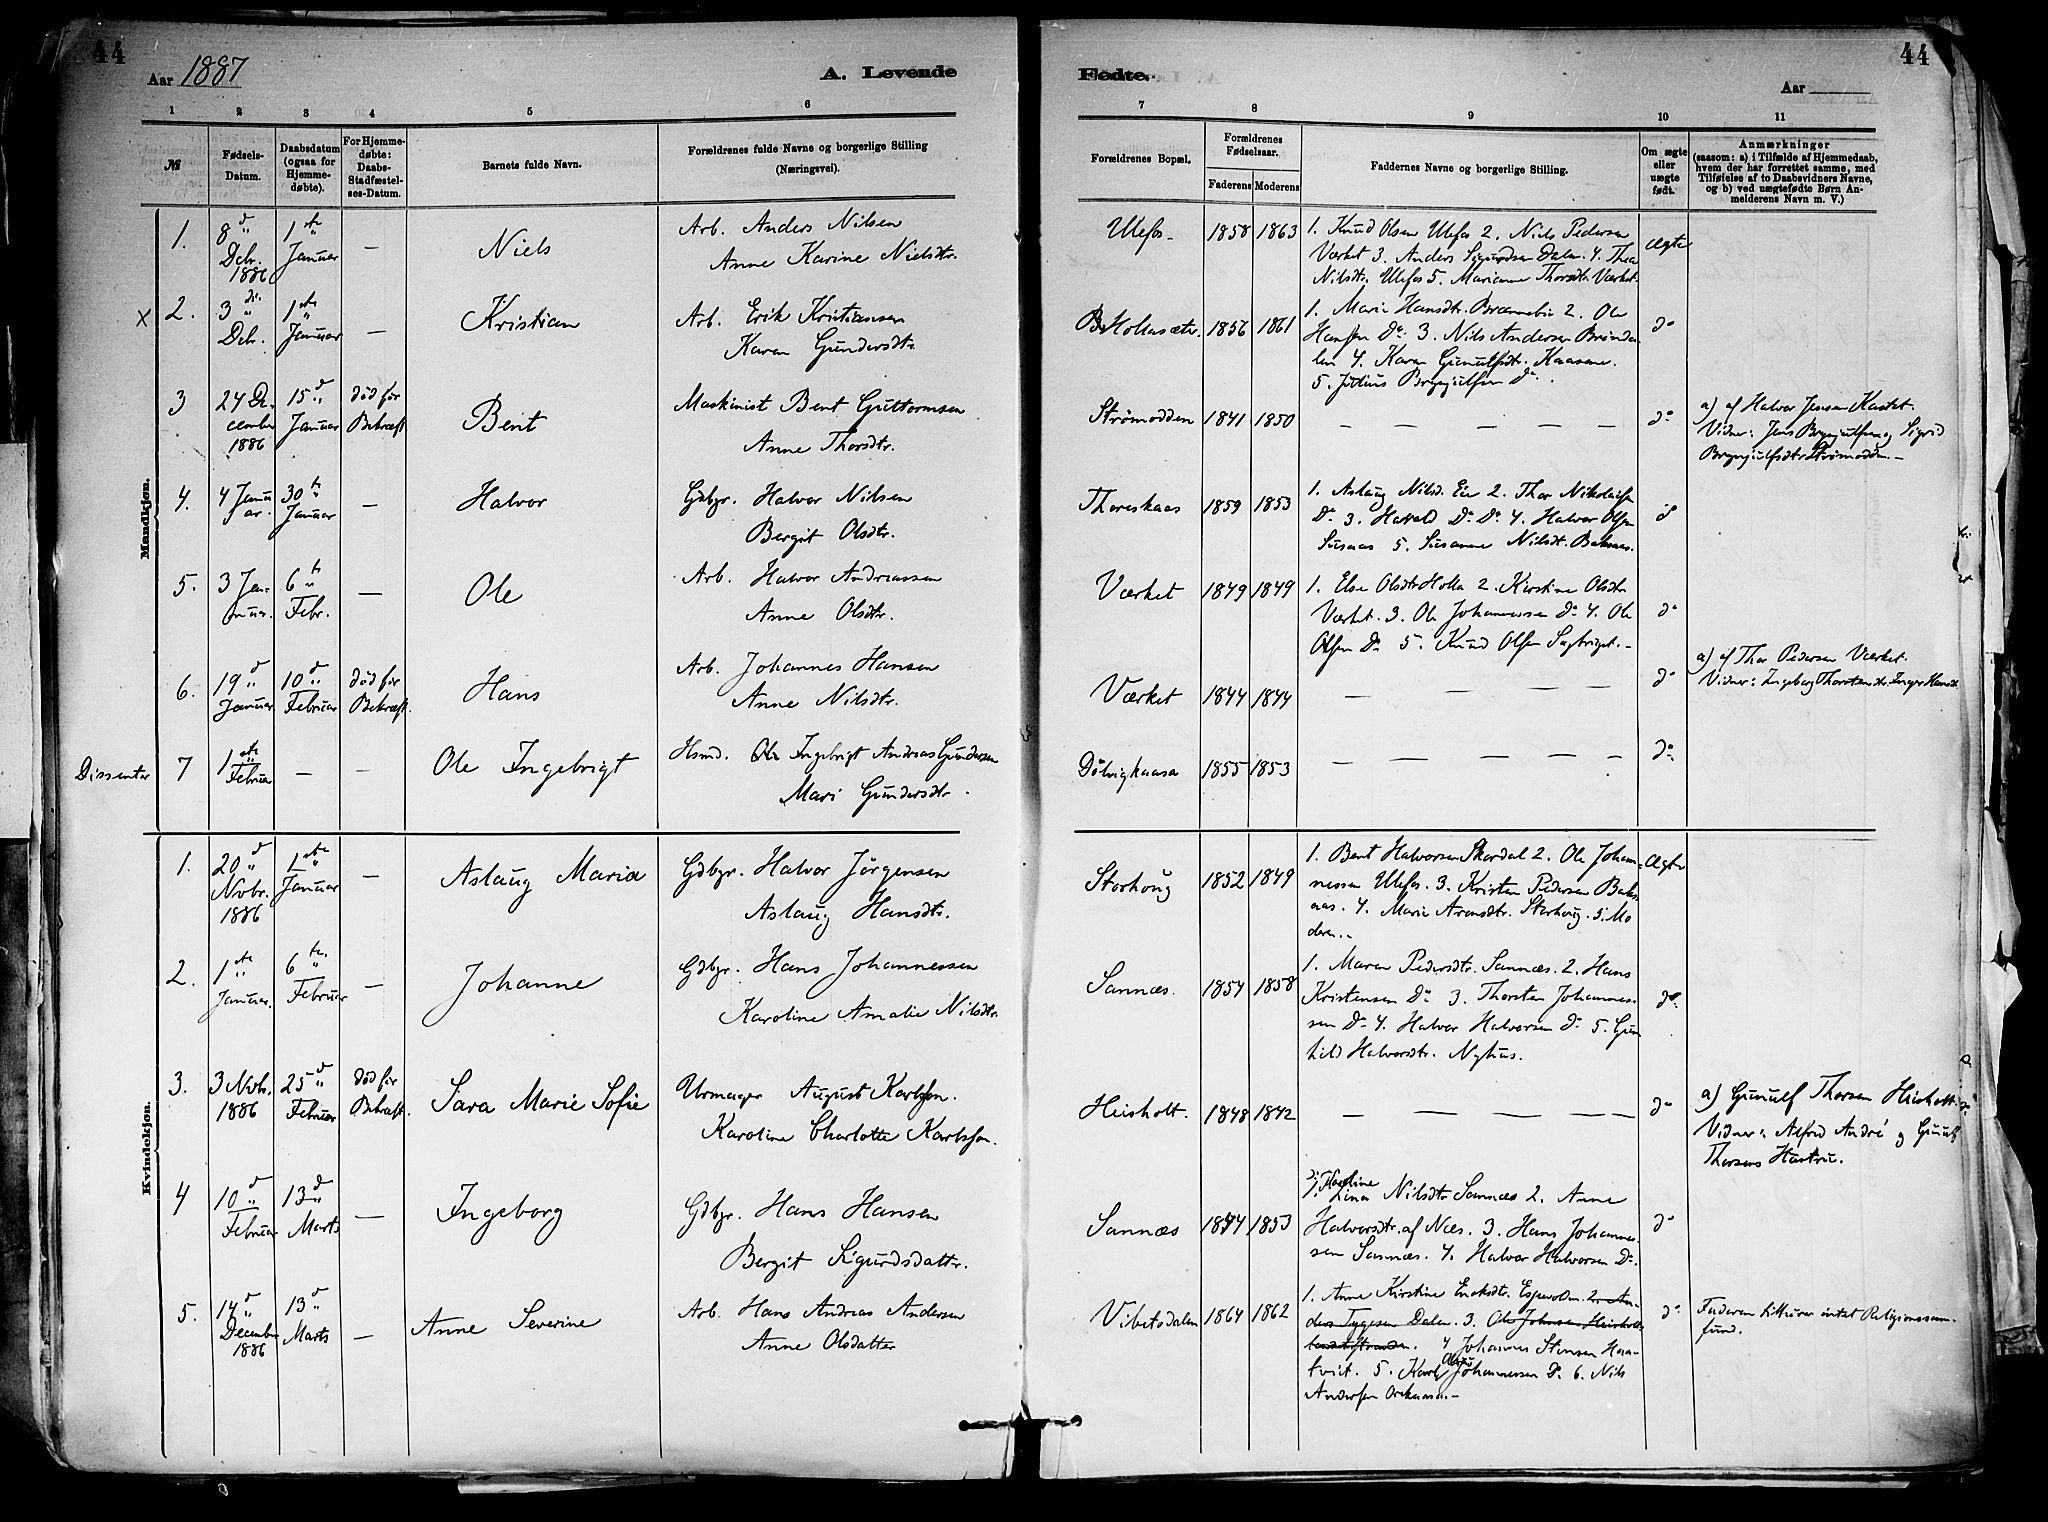 44
Aar 1887
A. Levende
Fødte.
Aar
44
1 2 3 4 5 6 7 8 9 10 11
№
Fødsels-
Datum.
Daabsdatum
(ogsaa for
Hjemme-
døbte).
For Hjemme-
døbte:
Daabs-
Stadfæstel-
ses-Datum.
Barnets fulde Navn.
Forældrenes fulde Navne og borgerlige Stilling
(Næringsvei).
Forældrenes Bopæl.
Forældrenes
Fødselsaar.
Faderens Moderens
Faddernes Navne og borgerlige Stilling.
Om ægte
eller
uægte
født.
Anmærkninger
(saasom: a) i Tilfælde af Hjemmedaab,
hvem der har forrettet samme, med
Tilføielse af to Daabsvidners Navne,
og b) ved uægtefødte Børn An-
melderens Navn m. V.)
Mandkjøn.
1. 8d Debr. 1886 1ste Januar — Niels
Arb. Anders Nilsen
Anne Karine Nielsdtr.
Ulefos 1858 1863
1. Knud Olsen Ulefos 2. Niels Pedersen
Værket 3. Anders Sigurdsen Dalen. 4. Thea
Nilsdtr. Ulefos 5. Marianne Thorsdtr. Værket.
ægte
X 2. 3die Debr. 1ste Januar — Kristian
Arb. Erik Kristiansen
Karen Gundersdtr.
B. Hollasæter. 1856 1861
1. Marie Hansdtr. 2. Ole
Hansen Do 3. Nils Andersen
4. Karen Gunulfsdtr. Kaasene.
5. Julius Brynjulfsen Do.
do
3 24 December 1886 15d Januar død før Bekræft. Bent
Maskinist Bent Guttormsen
Anne Thorsdtr.
Strømodden 1841 1850 — — — — —
do
a) af Halvor Jensen Kastet.
Vidner: Jens Brynjulfsen og Sigrid
Brynjulfsdtr Strømodden.—
4. 4 Januar. 30te Januar — Halvor
Gdbgr. Halvor Nilsen
Bergit Olsdtr.
Thoreskaas 1859 1853
1. Aslaug Nilsd. Eie 2. Thor Nikolaisen
Do 3. Do Do 4. Halvor Olsen
5. Susanne Nilsdt. Baksaas.
do
5. 3 Januar. 6te Febr. — Ole
Arb. Halvor Andreassen
Anne Olsdtr.
Værket 1849 1849
1. Else Olsdtr Holla 2. Kirstine Olsdtr
Værket. 3. Ole Johannessen Do 4. Ole
Olsen Do 5. Knud Olsen
do
6. 19d Januar 10d Februar død før Bekræft. Hans
Arb. Johannes Hansen
Anne Nilsdtr.
Værket 1844 1844 — — — — —
do
a) af Thor Pedersen Værket.
Vidner: Ingeborg Thorstensdtr. Inger Hansdtr.
Dissenter 7 1ste Februar — — Ole Ingebrigt
Hsmd. Ole Ingebrigt Andreas Gundersen
Mari Gundersdtr.
Dölvigkaasa 1855 1853 — — — — —
do
Kvindekjøn.
1. 20d Novbr. 1886 1ste Januar — Aslaug Maria
Gdbgr. Halvor Jörgensen
Aslaug Hansdtr.
Storhoug 1852 1849
1. Bent Halvorsen Skardal 2. Ole Johan-
nessen Ulefos. 3. Kristen Pedersen Baks-
aas. 4. Marie Aronsdtr. Storhoug. 5. Mo
deren.
Ægte
2. 1ste Januar. 6te Februar — Johanne
Gdbgr. Hans Johannessen
Karoline Amalie Nilsdtr.
Sannæs. 1854 1858
1. Maren Pedersdtr. Sannæs. 2. Hans
Kristensen Do 3. Thorsten Johannes-
sen Do 4. Halvor Halvorsen Do 5. Gun
hild Halvorsdtr. Nyhus.
do
3. 3 Novbr. 1886 25d Februar død før Bekræft. Sara Marie Sofie
Urmager August Karlsson.
Karoline Charlotte Karlsson.
Heisholt. 1848 1842 — — — — —
do
a) Gunulf Thorsen Heisholt.
Vidner: Alfred André og Gunulf
Thorsens Hustru.
4 10d Februar 13d Marts — Ingeborg
Gdbgr. Hans Hansen
Bergit Sigurdsdattr.
Sannæs 1854 1853
1. Karoline Nilsdtr Sannæs 2. Anne
Halvorsdtr. af Næs. 3. Hans Johannes-
sen Sannæs. 4. Halvor Halvorsen Do.
do
5. 14d December 1886 13d Marts — Anne Severine
Arb. Hans Andreas Andersen
Anne Olsdatter
Vibetodalen 1864 1862
1. Anne Kirstine Eriksdtr. 2. An-
ders Tygesen Dalen. 3. Ole Johnsen Heisholt
4 Johannes Stensen
5. Karl Johannessen Do. 6. Nils
Andersen
do
Faderen tilhører intet Religionssam-
fund.